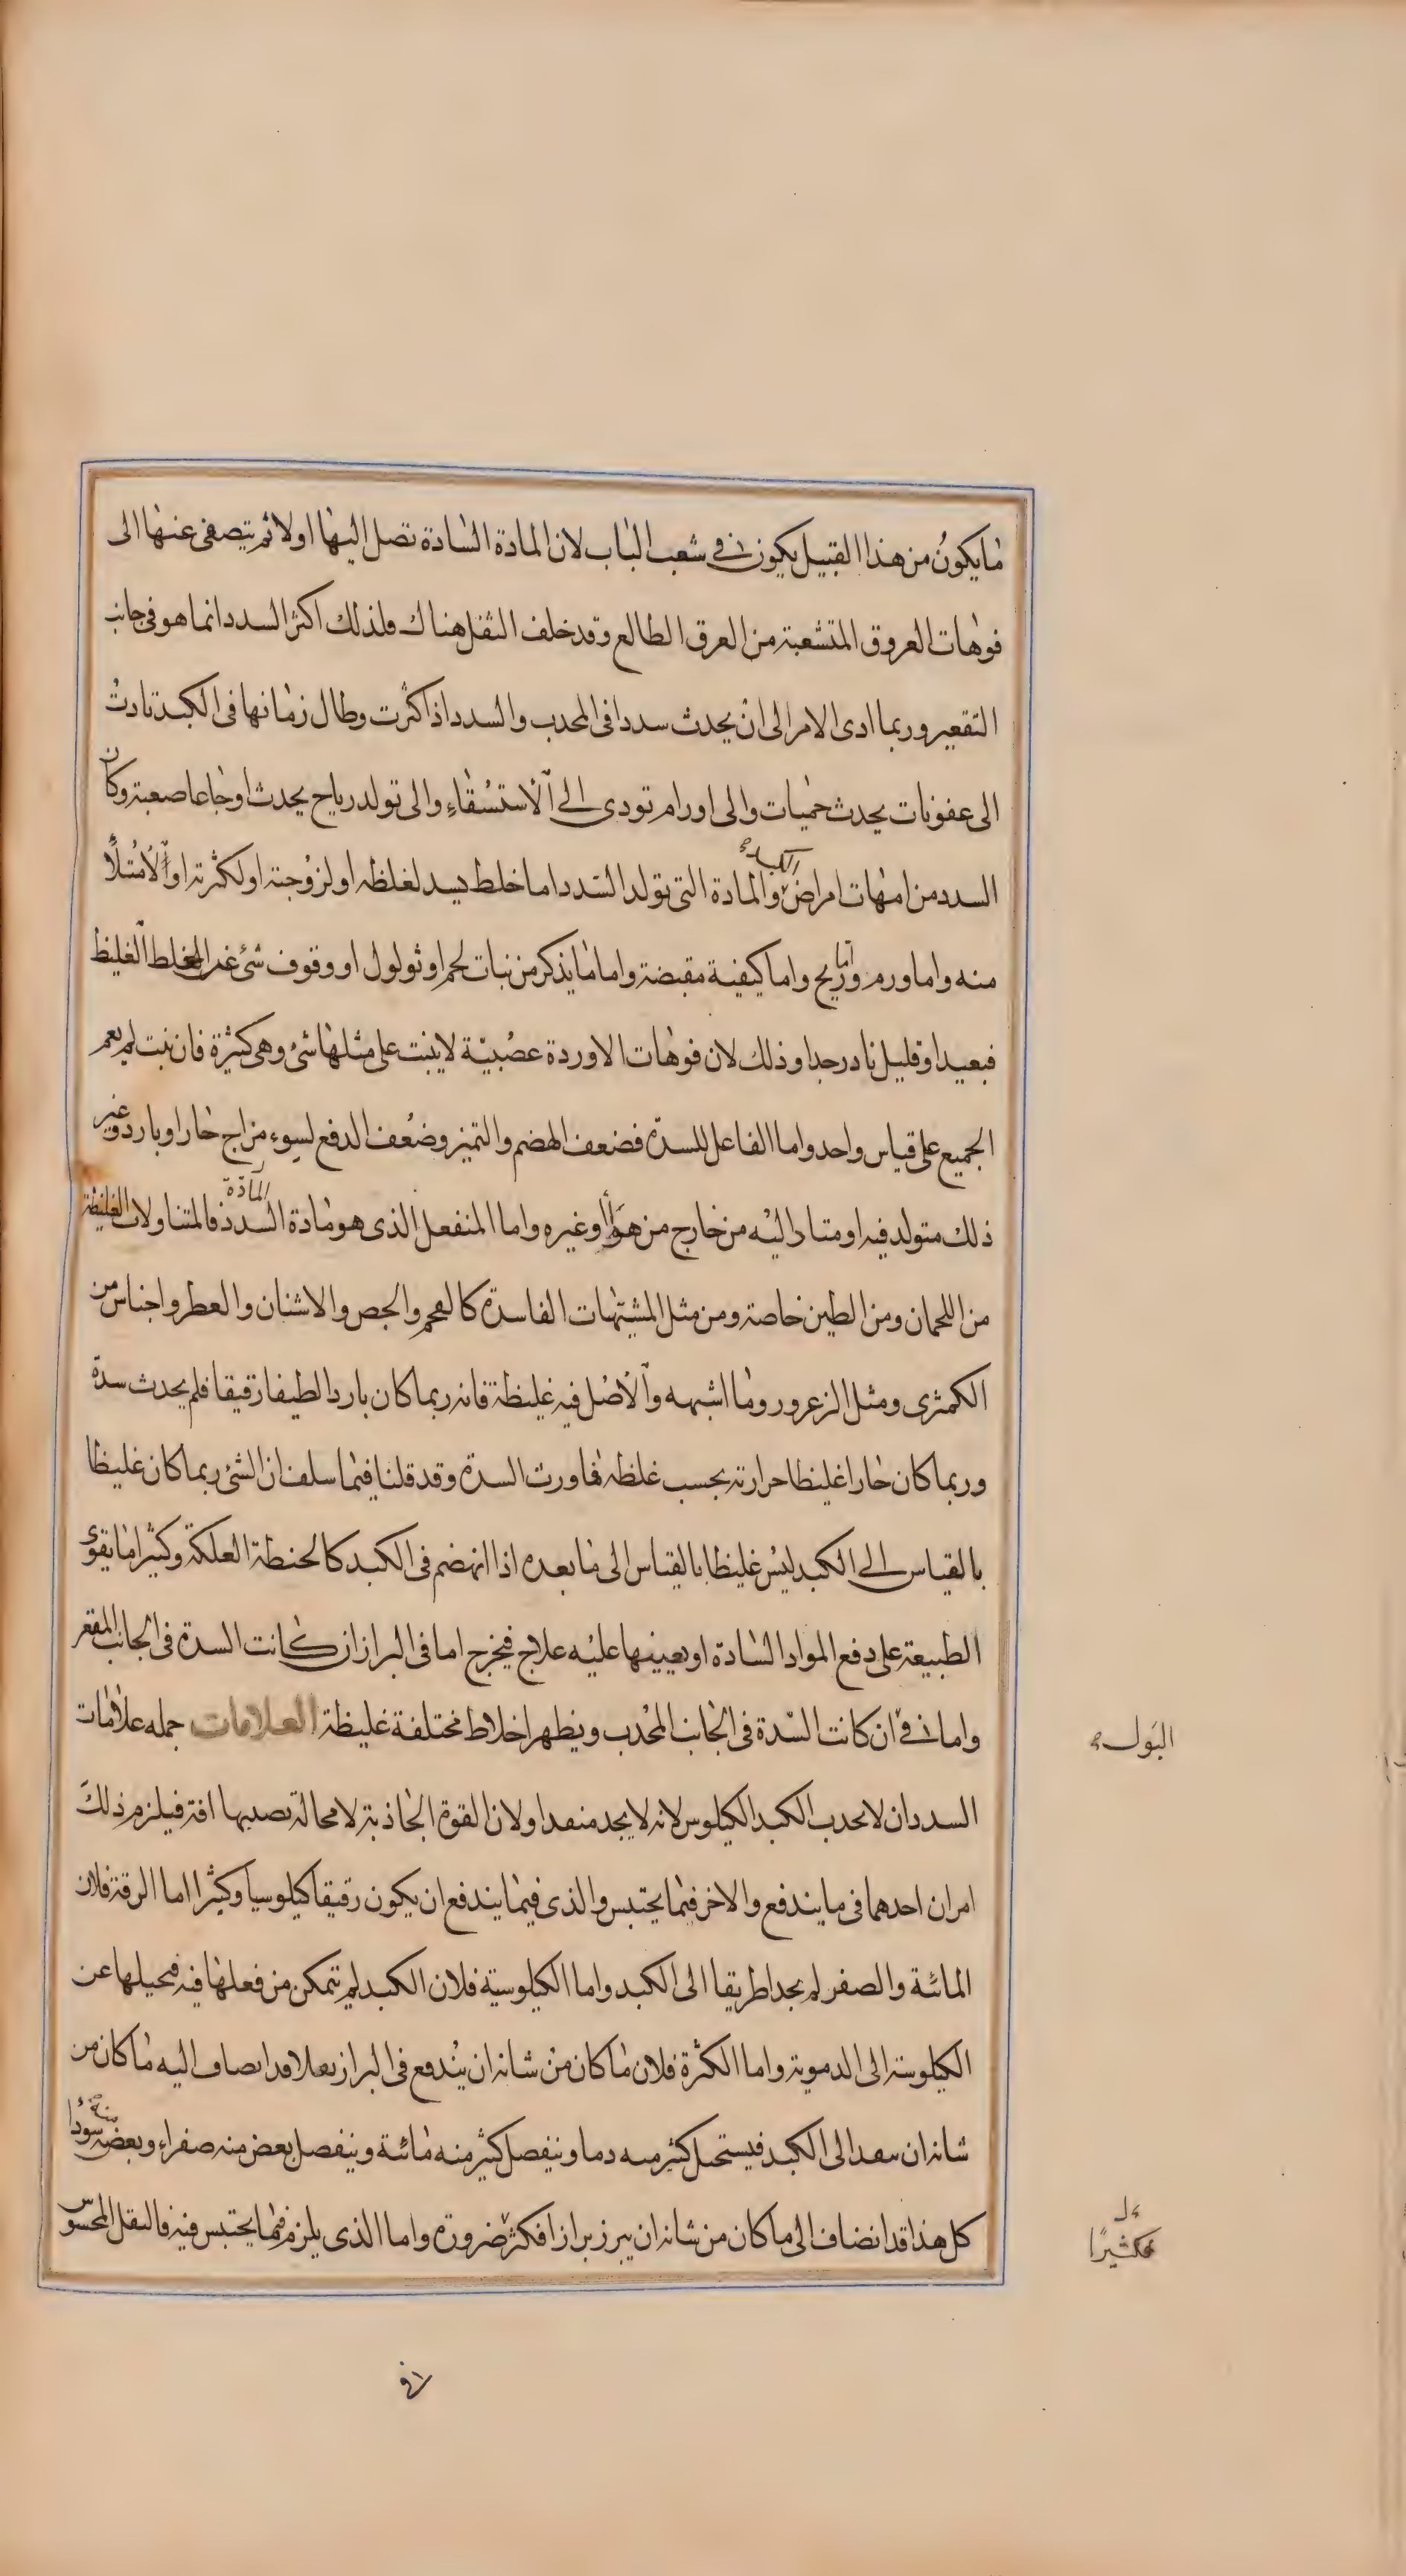 ما يكون من هذا القبيل يكون في شعب الباب لان المادة السادة تصل اليها اولا ثم يتصفى عنها الى
فوهات العروق المتشعبة من العرق الطالع وقد خلف الثفل هناك ولذلك اكثر السدد انما هو في جانب
التقعير وربما ادى الامر الى ان يحدث سددا في المحدب والسدد اذا كثرت وطال زمانها في الكبد تادت
الى عفونات يحدث حميات والى اورام تودي الى الاستسقاء والى تولد رياح يحدث اوجاعا صعبة وكان
السدد من امهات امراض الكبد والمادة التي تولد السدد اما خلط يسد لغلظه او لزوجته او لكثرته او الامتلاء
منه واما ورم واما ريح واما كيفية مقبضة واما ما يذكر من نبات لحم او ثولول او وقوف شئ غير الخلط الغليظ
فبعيد او قليل نادر جدا وذلك لان فوهات الاوردة عصبية لا ينبت على مثلها شئ وهي كثيرة فان نبت لم يعم
الجميع على قياس واحد واما الفاعل للسدة فضعف الهضم والتميز وضعف الدفع لسوء مزاج حار او بارد وغير
ذلك متولد فيه او متاد اليه من خارج من هواء او غيره واما المنفعل الذي هو مادة السدد المادة فالمتناولات الغليظة
من اللحمان ومن الطين خاصة ومن مثل المشتهات الفاسدة كالفحم والجص والاشنان والعطر واجناس من
الكمثرى ومثل الزعرور وما اشبهه والاصل فيه غليظة فانه ربما كان باردا لطيفا رقيقا فلم يحدث سدة
وربما كان حارا غليظا حرارته بحسب غلظه فاورت السدة وقد قلنا فيما سلف ان الشئ ربما كان غليظا
بالقياس الى الكبد ليس غليظا بالقياس الى ما بعده اذا انهضم في الكبد كالحنطة العلكة وكثيرا ما يقوى
الطبيعة على دفع المواد السادة او يعينها عليه علاج فيخرج اما في البراز ان كانت السدة في الجانب المقعر
واما في ان كانت السدة في الجانب المحدب ويظهر اخلاط مختلفة غليظة العلامات جمله علامات
البول
السدد ان لا يحدب الكبد الكيلوس لانه لا يجد منفدا ولان القوة الجاذبة لا محالة يصيبها افة فيلزم ذلك
امران احدهما في ما يندفع والاخر فيما يحتبس والذي فيما يندفع ان يكون رقيقا كيلوسيا وكثيرا اما الرقة فلان
المائية والصفر لم يجد طريقا الى الكبد واما الكيلوسية فلان الكبد لم تتمكن من فعلها فيه فيحيلها عن
الكيلوسية الى الدموية واما الكثرة فلان ما كان من شانه ان يندفع في البراز ثفلا قد انضاف اليه ما كان من
شانه ان ينفد الى الكبد فيستحيل كثير منه دما وينفصل كثير منه مائية وينفصل بعض منه صفراء وبعض منه سودا
كل هذا قد انضاف الى ما كان من شانه ان يبرز برازا فكثر ضرورة واما الذي يلزم فيما يحتبس فيه فالثقل المحسوس
كثيرا